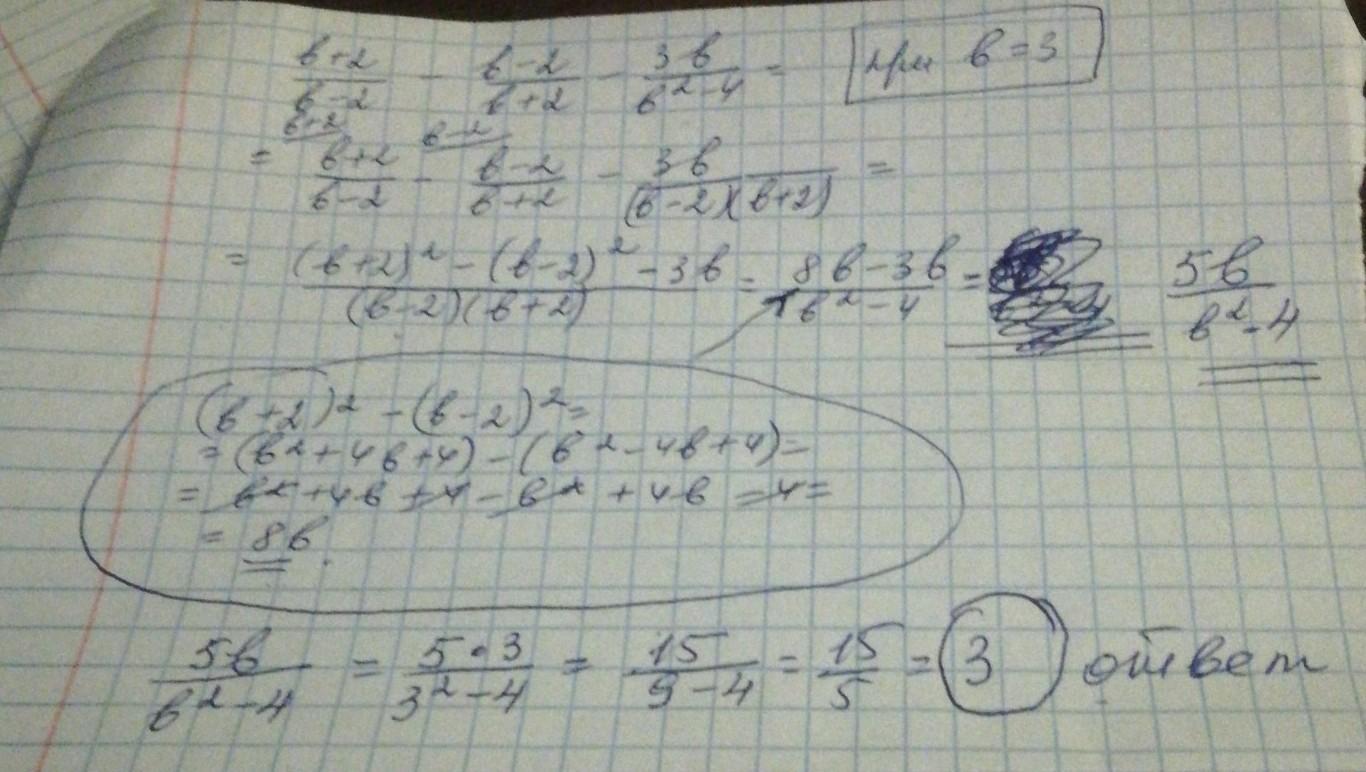 (в+2)/(в-2) - (в-2)/(в+2) - 3в/(в²-4) = при в=3
в+2 в-2
= (в+2)/(в-2) - (в-2)/(в+2) - 3в/((в-2)(в+2)) =
= ((в+2)² - (в-2)² - 3в)/((в-2)(в+2)) = (8в-3в)/(в²-4) = 5в/(в²-4)
(в+2)² - (в-2)² =
= (в²+4в+4) - (в²-4в+4) =
= в²+4в+4-в²+4в-4=
= 8в.
5в/(в²-4) = 5·3/(3²-4) = 15/(9-4) = 15/5 = 3 ответ